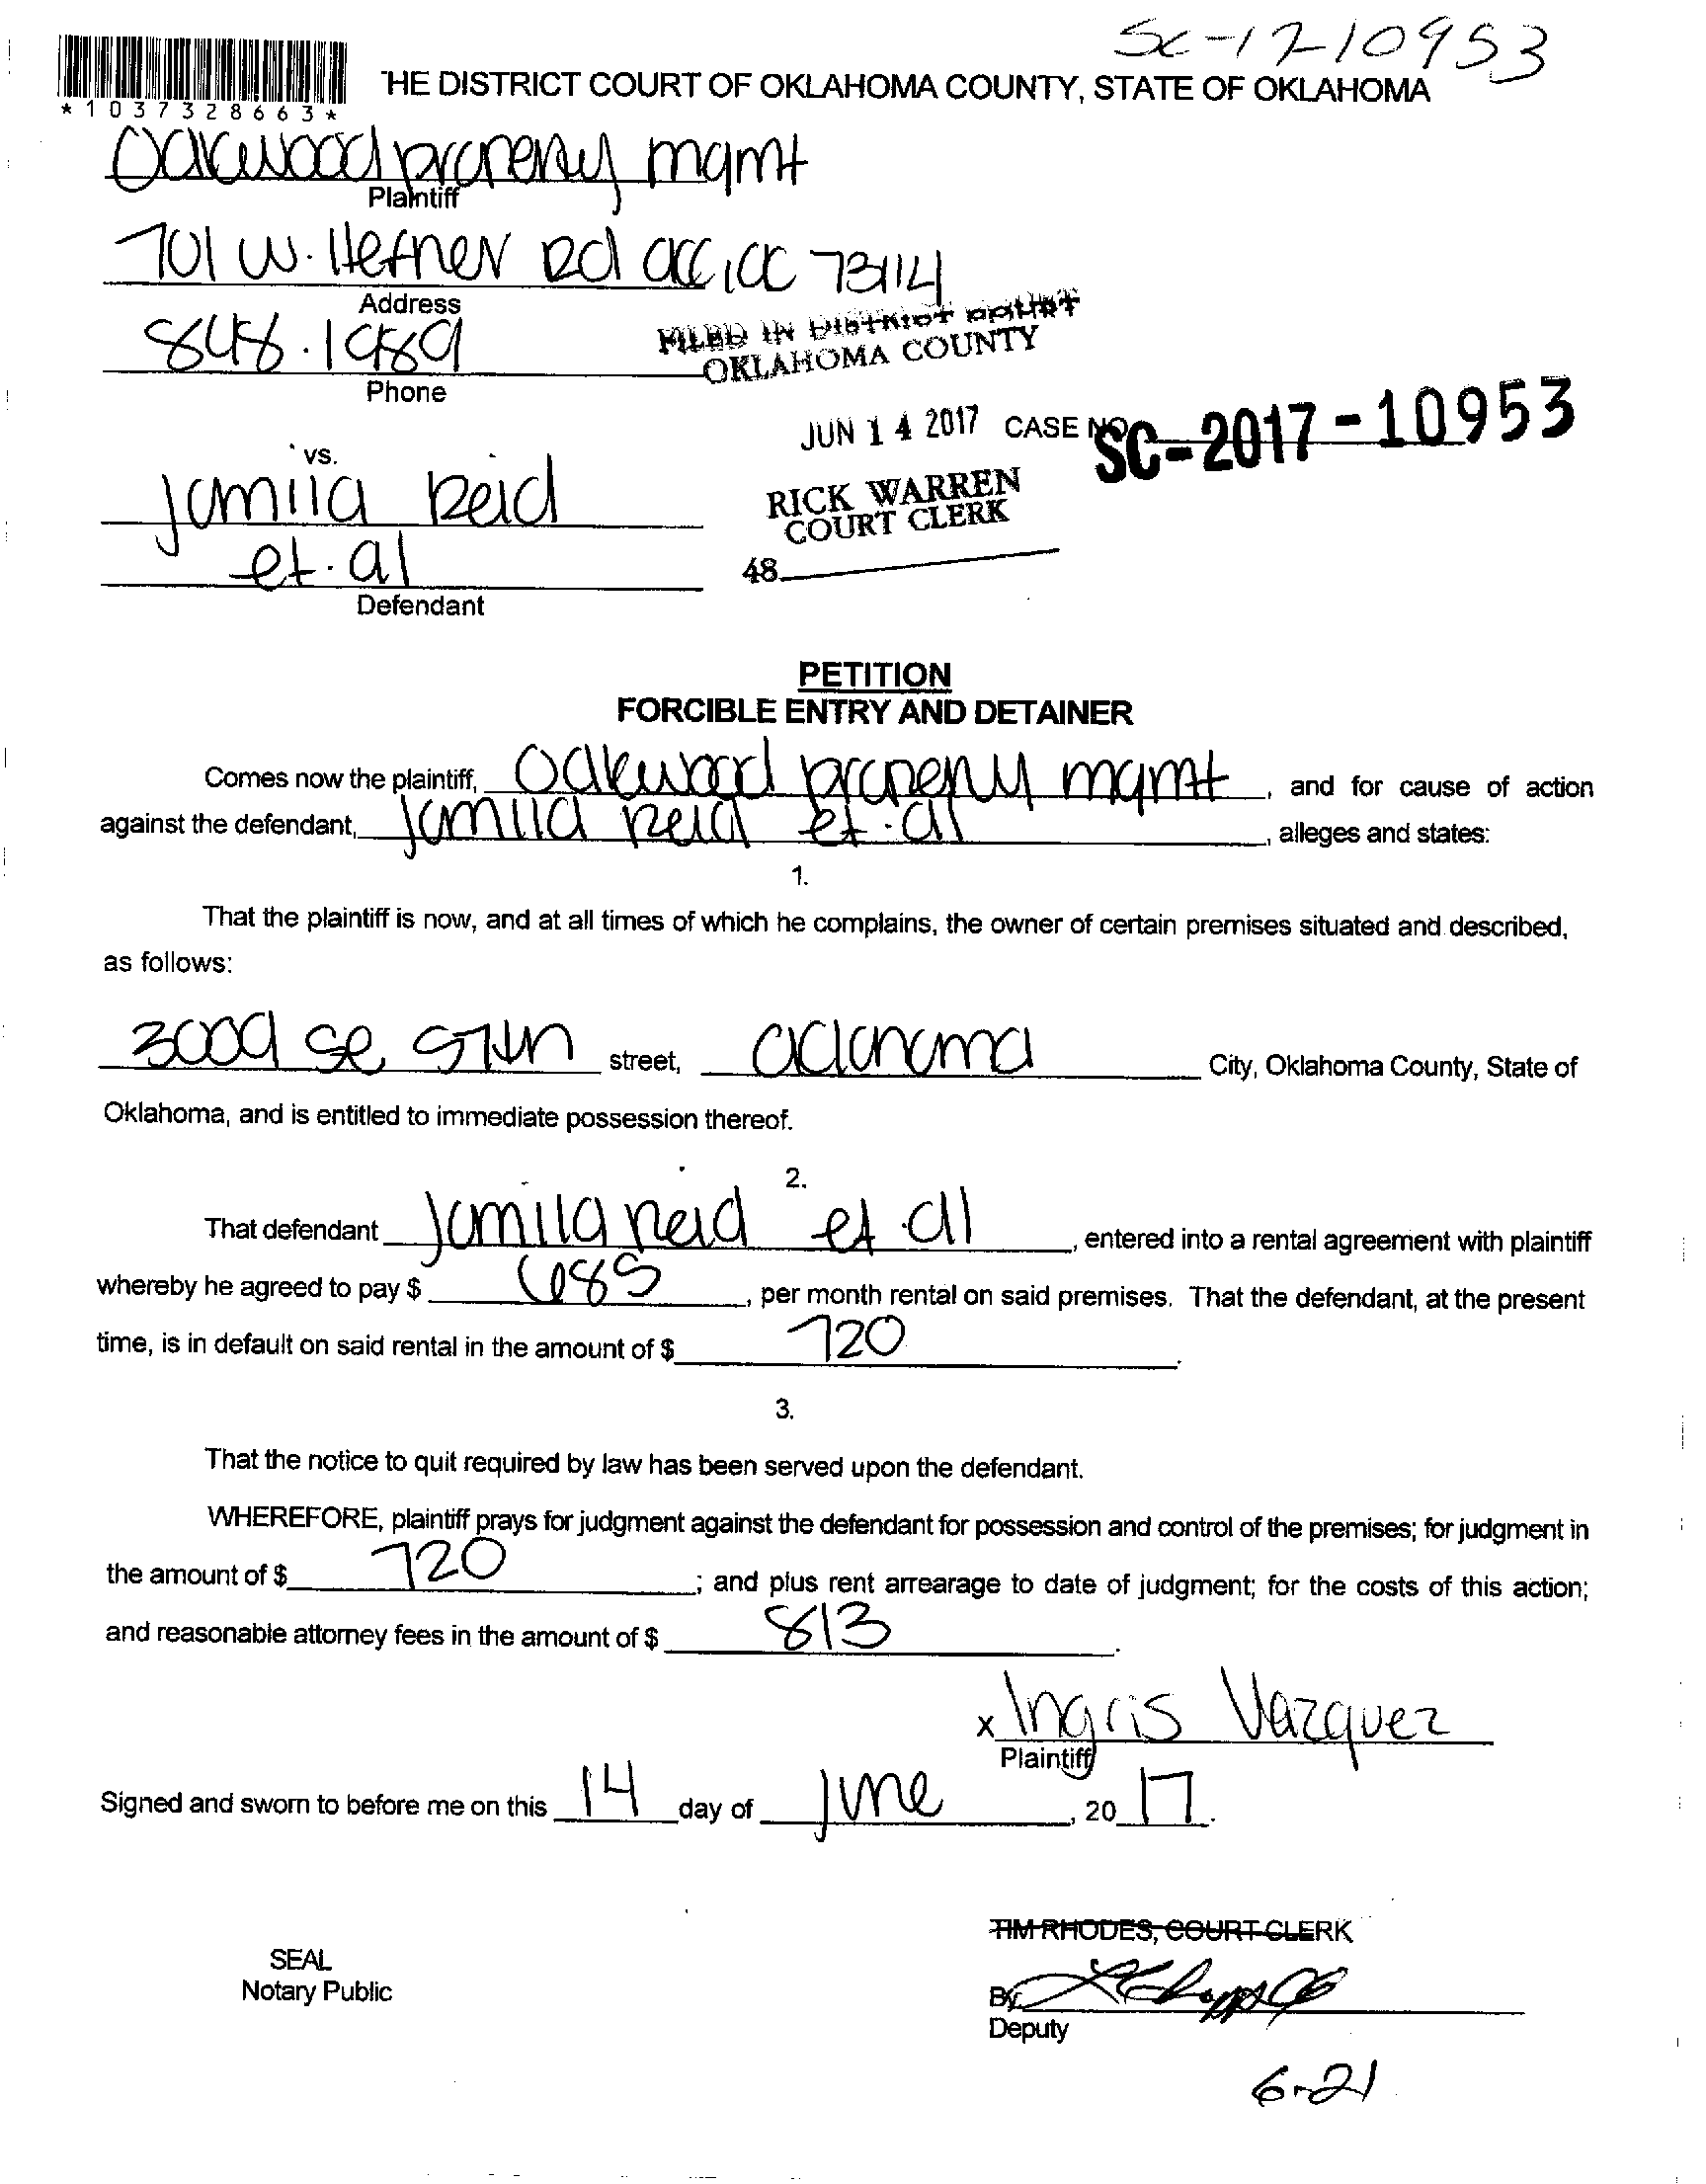 SC-17-10953
THE DISTRICT COURT OF OKLAHOMA COUNTY, STATE OF OKLAHOMA
*1037328663*
Oakwood property mgmt
Plaintiff
701 W. Hefner Rd OKC, OK 73114
Address
848.1989
Phone
FILED IN DISTRICT COURT
OKLAHOMA COUNTY
JUN 14 2017 CASE NO. SC-2017-10953
vs.
Jamila Reid
RICK WARREN
COURT CLERK
et. al
48
Defendant
PETITION
FORCIBLE ENTRY AND DETAINER
Comes now the plaintiff, Oakwood property mgmt, and for cause of action
against the defendant, Jamila Reid et. al, alleges and states:
1.
That the plaintiff is now, and at all times of which he complains, the owner of certain premises situated and described,
as follows:
3009 SE 57th street, Oklahoma City, Oklahoma County, State of
Oklahoma, and is entitled to immediate possession thereof.
2.
That defendant Jamila Reid et. al, entered into a rental agreement with plaintiff
whereby he agreed to pay $ 685, per month rental on said premises. That the defendant, at the present
time, is in default on said rental in the amount of $ 720.
3.
That the notice to quit required by law has been served upon the defendant.
WHEREFORE, plaintiff prays for judgment against the defendant for possession and control of the premises; for judgment in
the amount of $ 720; and plus rent arrearage to date of judgment; for the costs of this action;
and reasonable attorney fees in the amount of $ 813.
x Ingris Vazquez
Plaintiff
Signed and sworn to before me on this 14 day of June, 20 17.
TIM RHODES, COURT CLERK
SEAL
Notary Public
By
Deputy
6-21